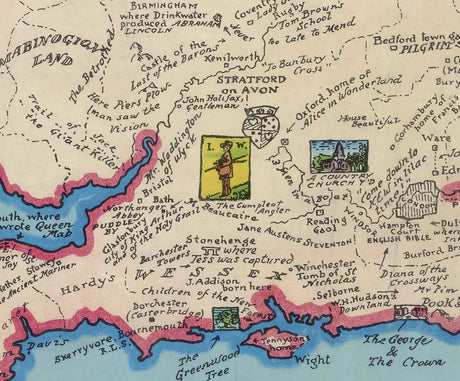 BIRMINGHAM
where Drinkwater
produced ABRAHAM
LINCOLN
Coventry
Lady
Rugby Brown's
Tom
School
Too late to Mend
MABINOGION
LAND
The Betrothed
Castle of the
Last of the Barons
Kenilworth
To Banbury
Cross
Bedford town gaol
PILGRIM'S
STRATFORD
on AVON
Here Piers Plow-
man saw the
Vision
John Halifax,
Gentleman
Oxford home of
Alice in Wonderland
Trail of Jack
The Giant Killer
Mr. Waddington
Wyck
I. W.
House
Beautiful
COUNTRY
CHURCHYD
Ware
Bristol
Bath
& The Compleat
Angler
Beaucaire
Northanger
Abbey
PUDDLE
Glastonbury
King Arthur
and of the Holy Grail
THAMES
WINDSOR
Reading
Gaol
Go down to
Kew in lilac
time
Hampton
Court
ENGLISH BIBLE
South, where
wrote Queen
Mab
Jane Austens STEVENTON
Stonehenge
where
Tess was captured
Barchester
Towers
WESSEX
Burford
Diana of the
Crossways
Mr Pim
Winchester
Tomb of St
Nicholas
J. Addison
born here
Children of the New
Forest
Selborne
W.H. Hudson's
Downland
Pook's
Ancient Mariner
Hardys
Dorchester
(Casterbridge)
Bournemouth
Skerryvore
R.L.S.
The
Greenwood
Tree
Tennysons
home
Wight
The George
&
The Crown